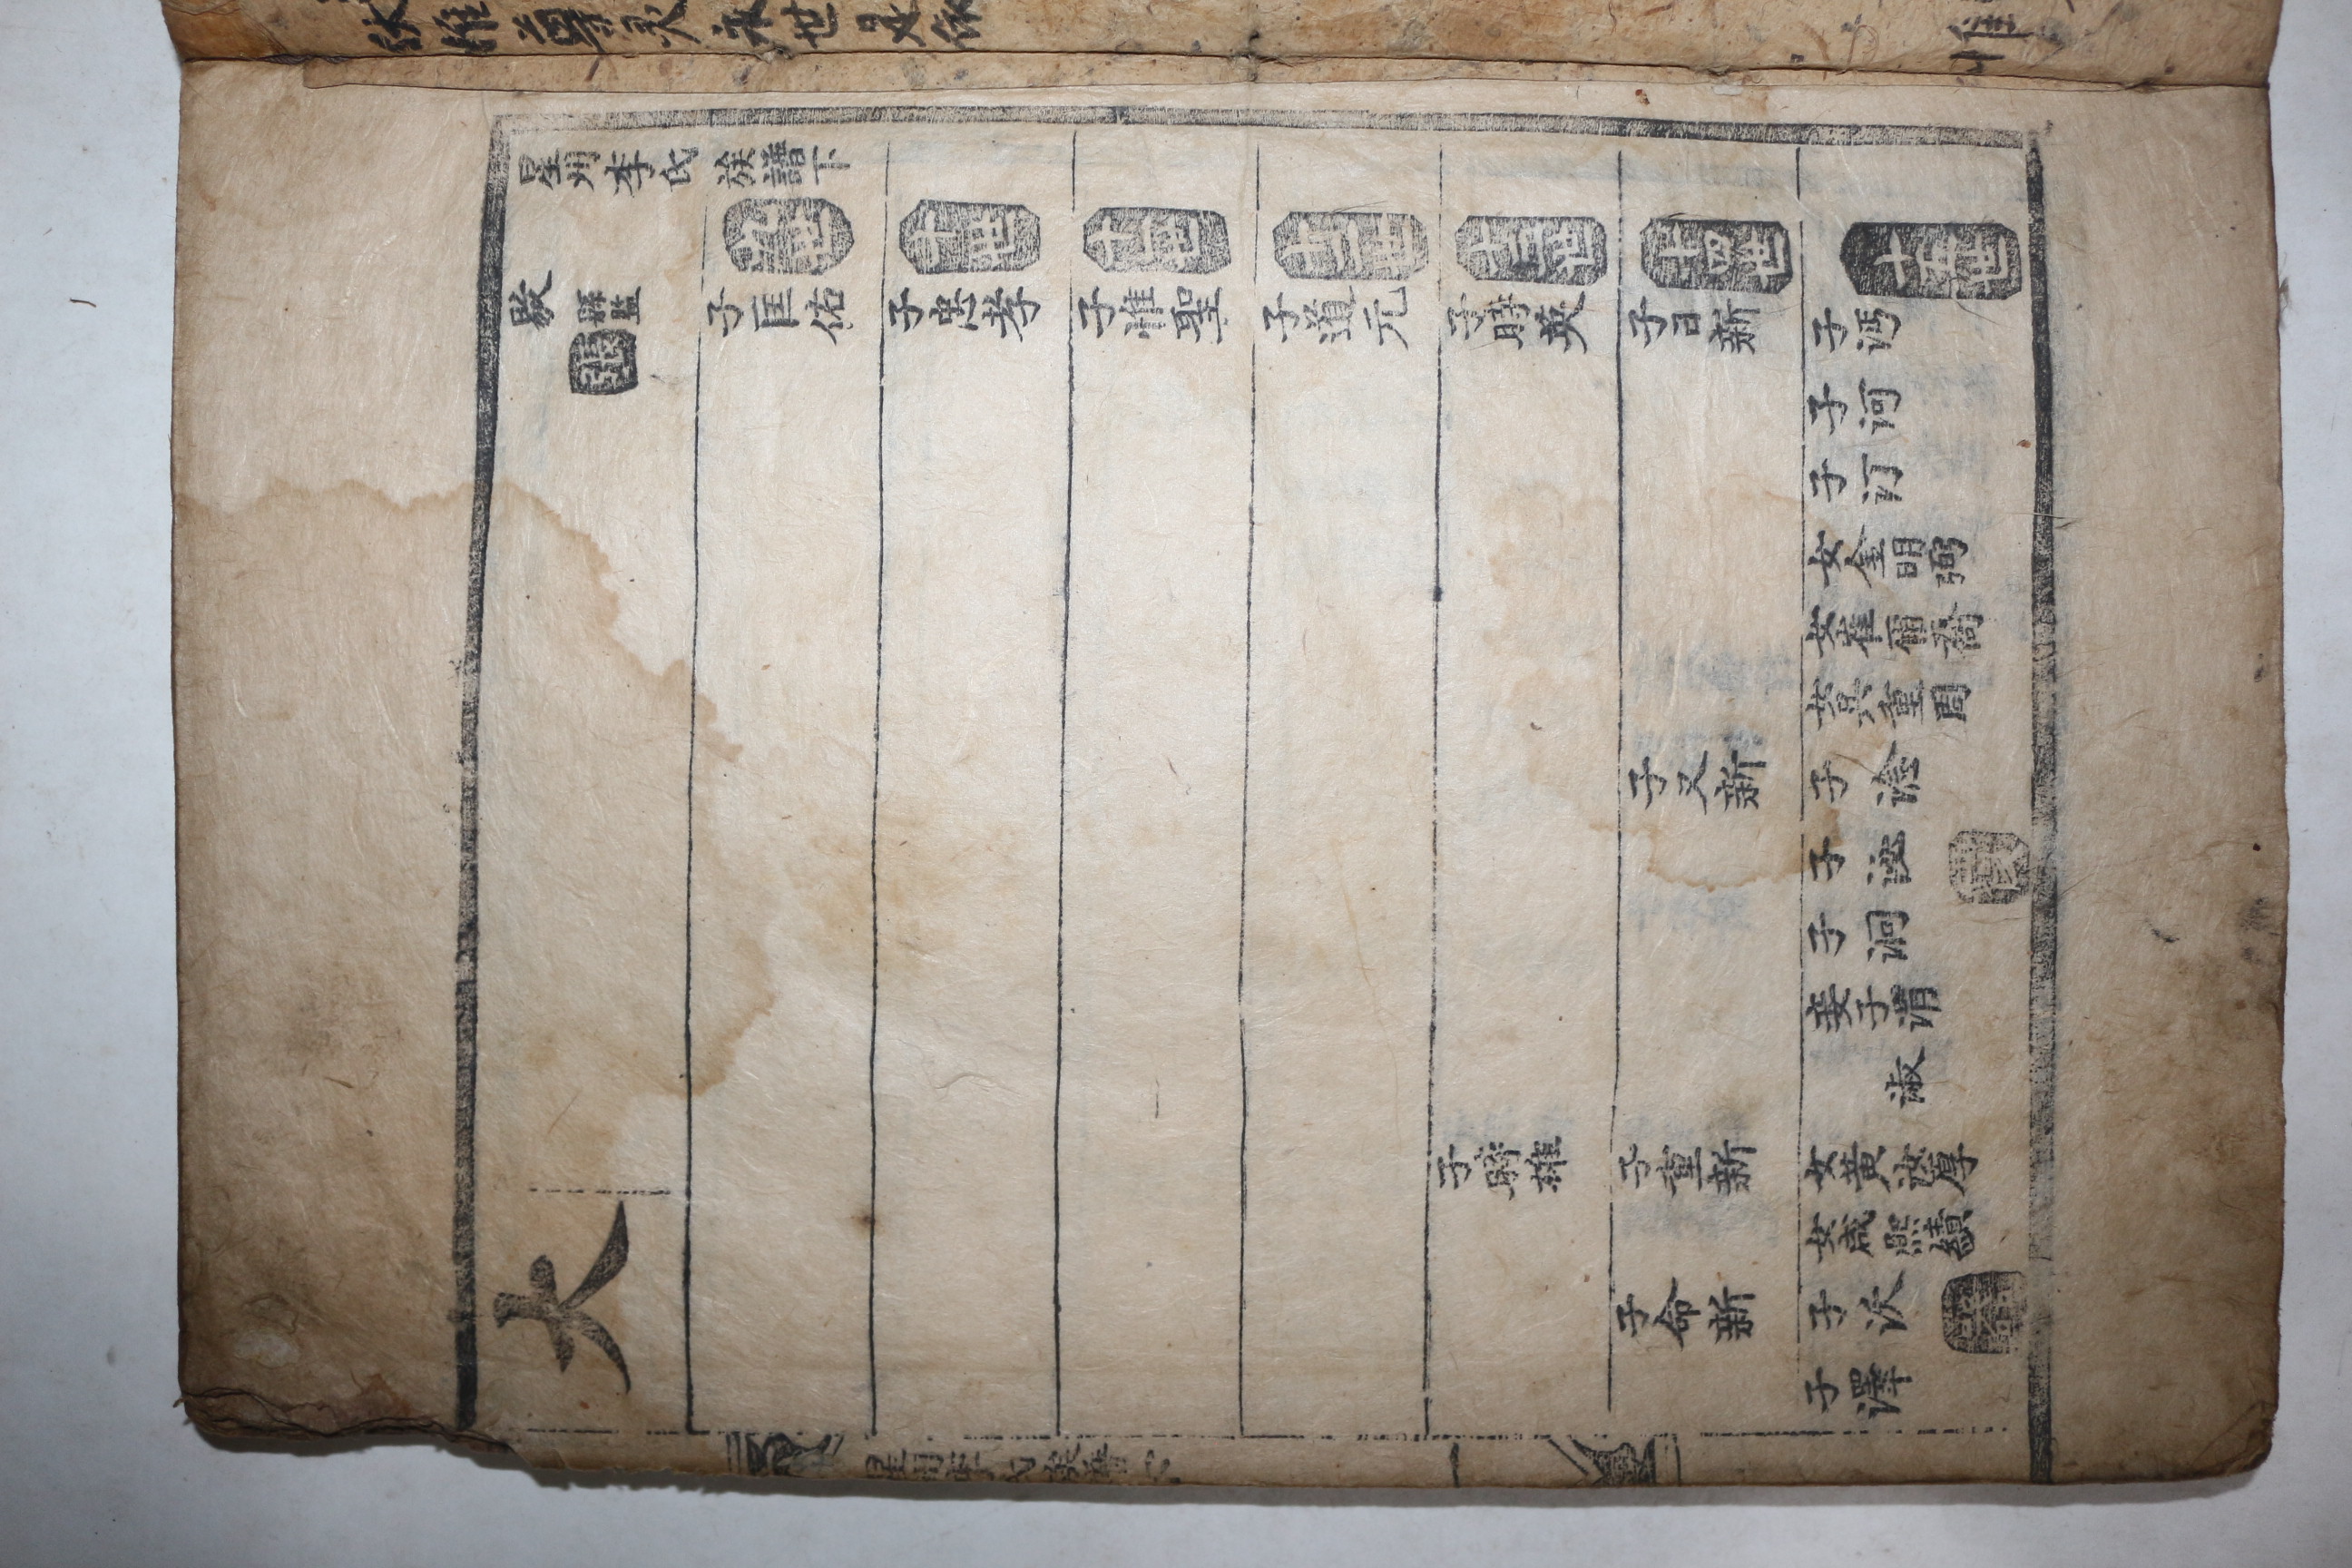 星州李氏族譜下
九世
十世
十一世
十二世
十三世
十四世
十五世
縣監
子匡佑
子忠孝
子惟聖
子道元
子時英
子日新
子溤
子河
子汀
女金明弼
女崔爾裔
女吳重周
子又新
子淦
子浚
子泂
妾子渭
淑
子時雄
子重新
女黃汝厚
女成熙績
子命新
子次
子澤
大
星州李氏族譜下